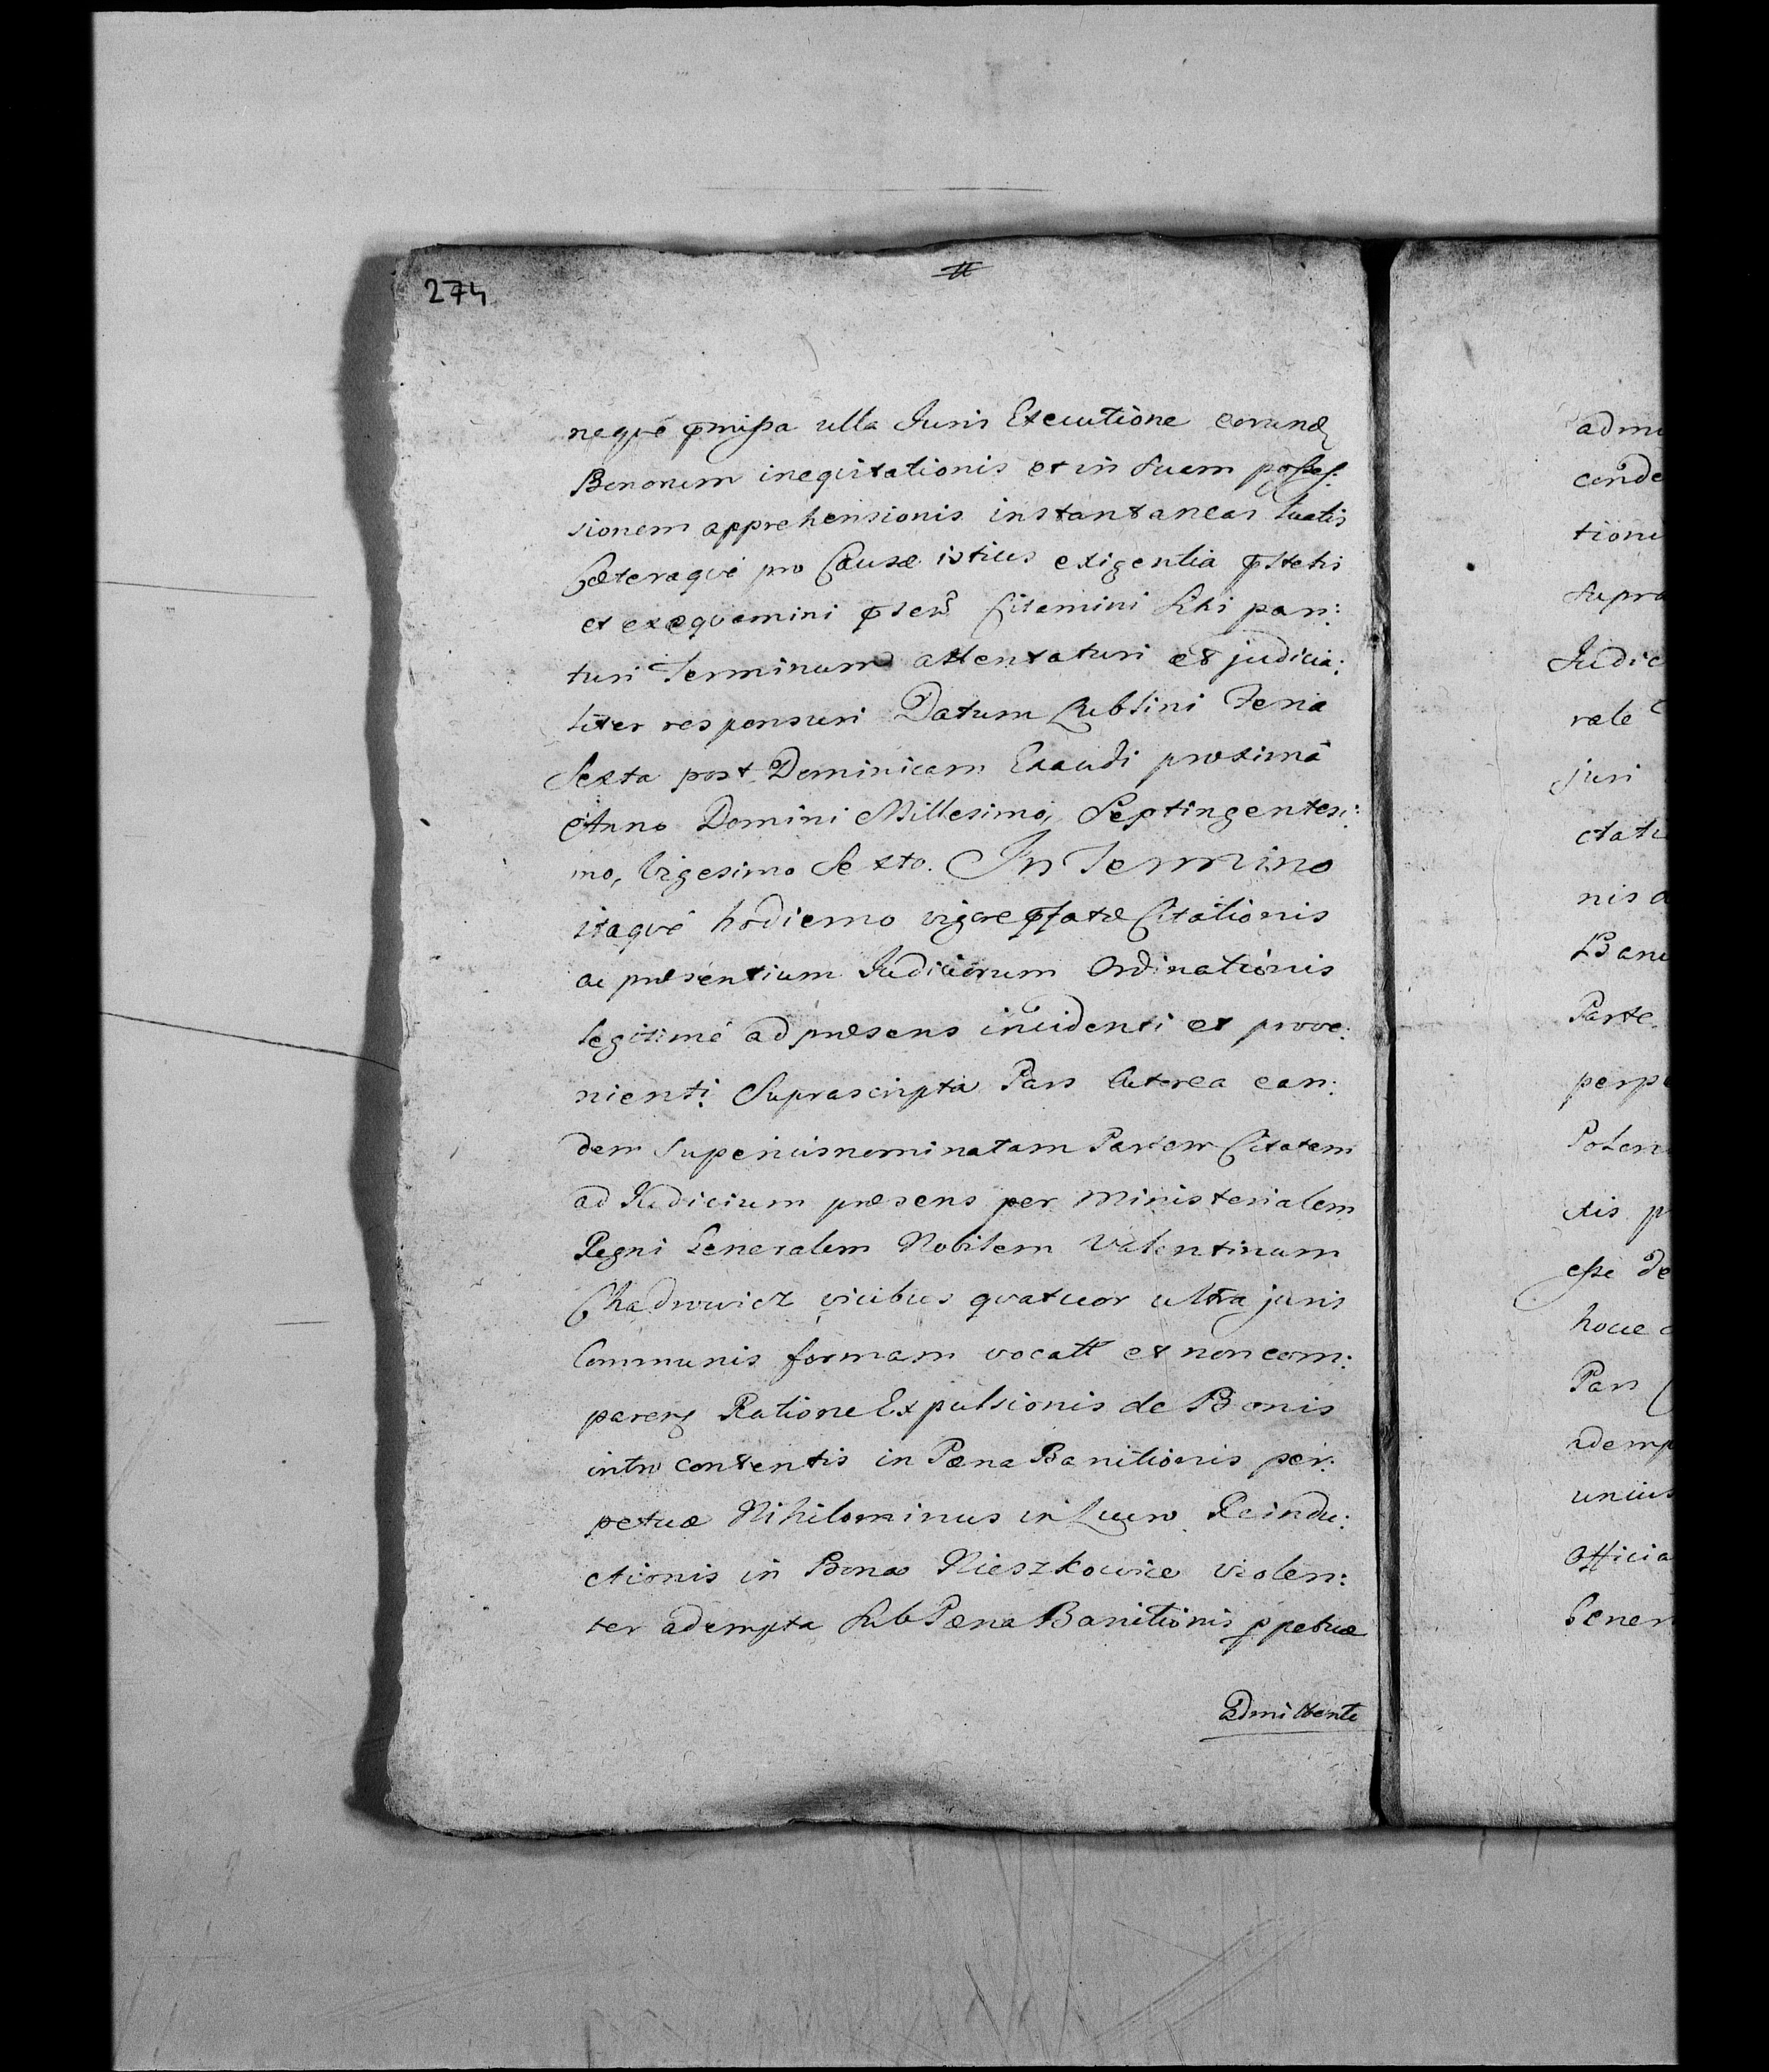 274
neqvè pmissa ulla Juris Executione eorund
Bonorum ineqvitationis et in suam posses:
sionem apprehensionis instantaneas luatis
Cæteraqvè pro Causæ istius exigentia pstetis
et exæqvamini pterw Citamini Sitis pari:
turi Terminum attentaturi et judicia:
liter responsuri Datum Lublini Feria
Sexta post Dominicam Exaudi proximâ
Anno Domini Millesimo, Septingentesi:
mo, Vigesimo Sexto. In Termino
itaqvè hodierno vigore pfatæ Citationis
ac præsentium Judiciorum Ordinationis
legitimè ad præsens incidenti et prove:
nienti Suprascripta Pars Actorea ean:
dem Superiusnominatam Partem Citatam
ad Judicium præsens per Ministerialem
Regni Generalem Nobilem Valentinum
Chadrowicz vicibus qvatuor ultra juris
Communis formam vocatt et non com:
paren Ratione Expulsionis de Bonis
intro contentis in Pæna Banitionis per:
petuæ Nihilominus in Lucro Reindu:
ctionis in Bona Nieszkowice violen:
ter adempta Sub Pæna Banitionis ppetuæ
admittente
adm
conde
tioni
Supra
Judic
rale
juri
ctatu
nis
Bani
Parte
perp
Poten
xis p
esse de
hocce
Pars
ademp
unius
Officia
Gener